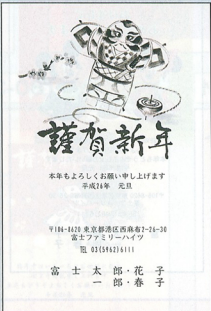 謹賀新年
本年もよろしくお願い申し上げます
平成26年　元旦
〒106-8620 東京都港区西麻布2-26-30
富士ファミリーハイツ
TEL 03(5962)6111
富士太郎・花子
一郎・春子